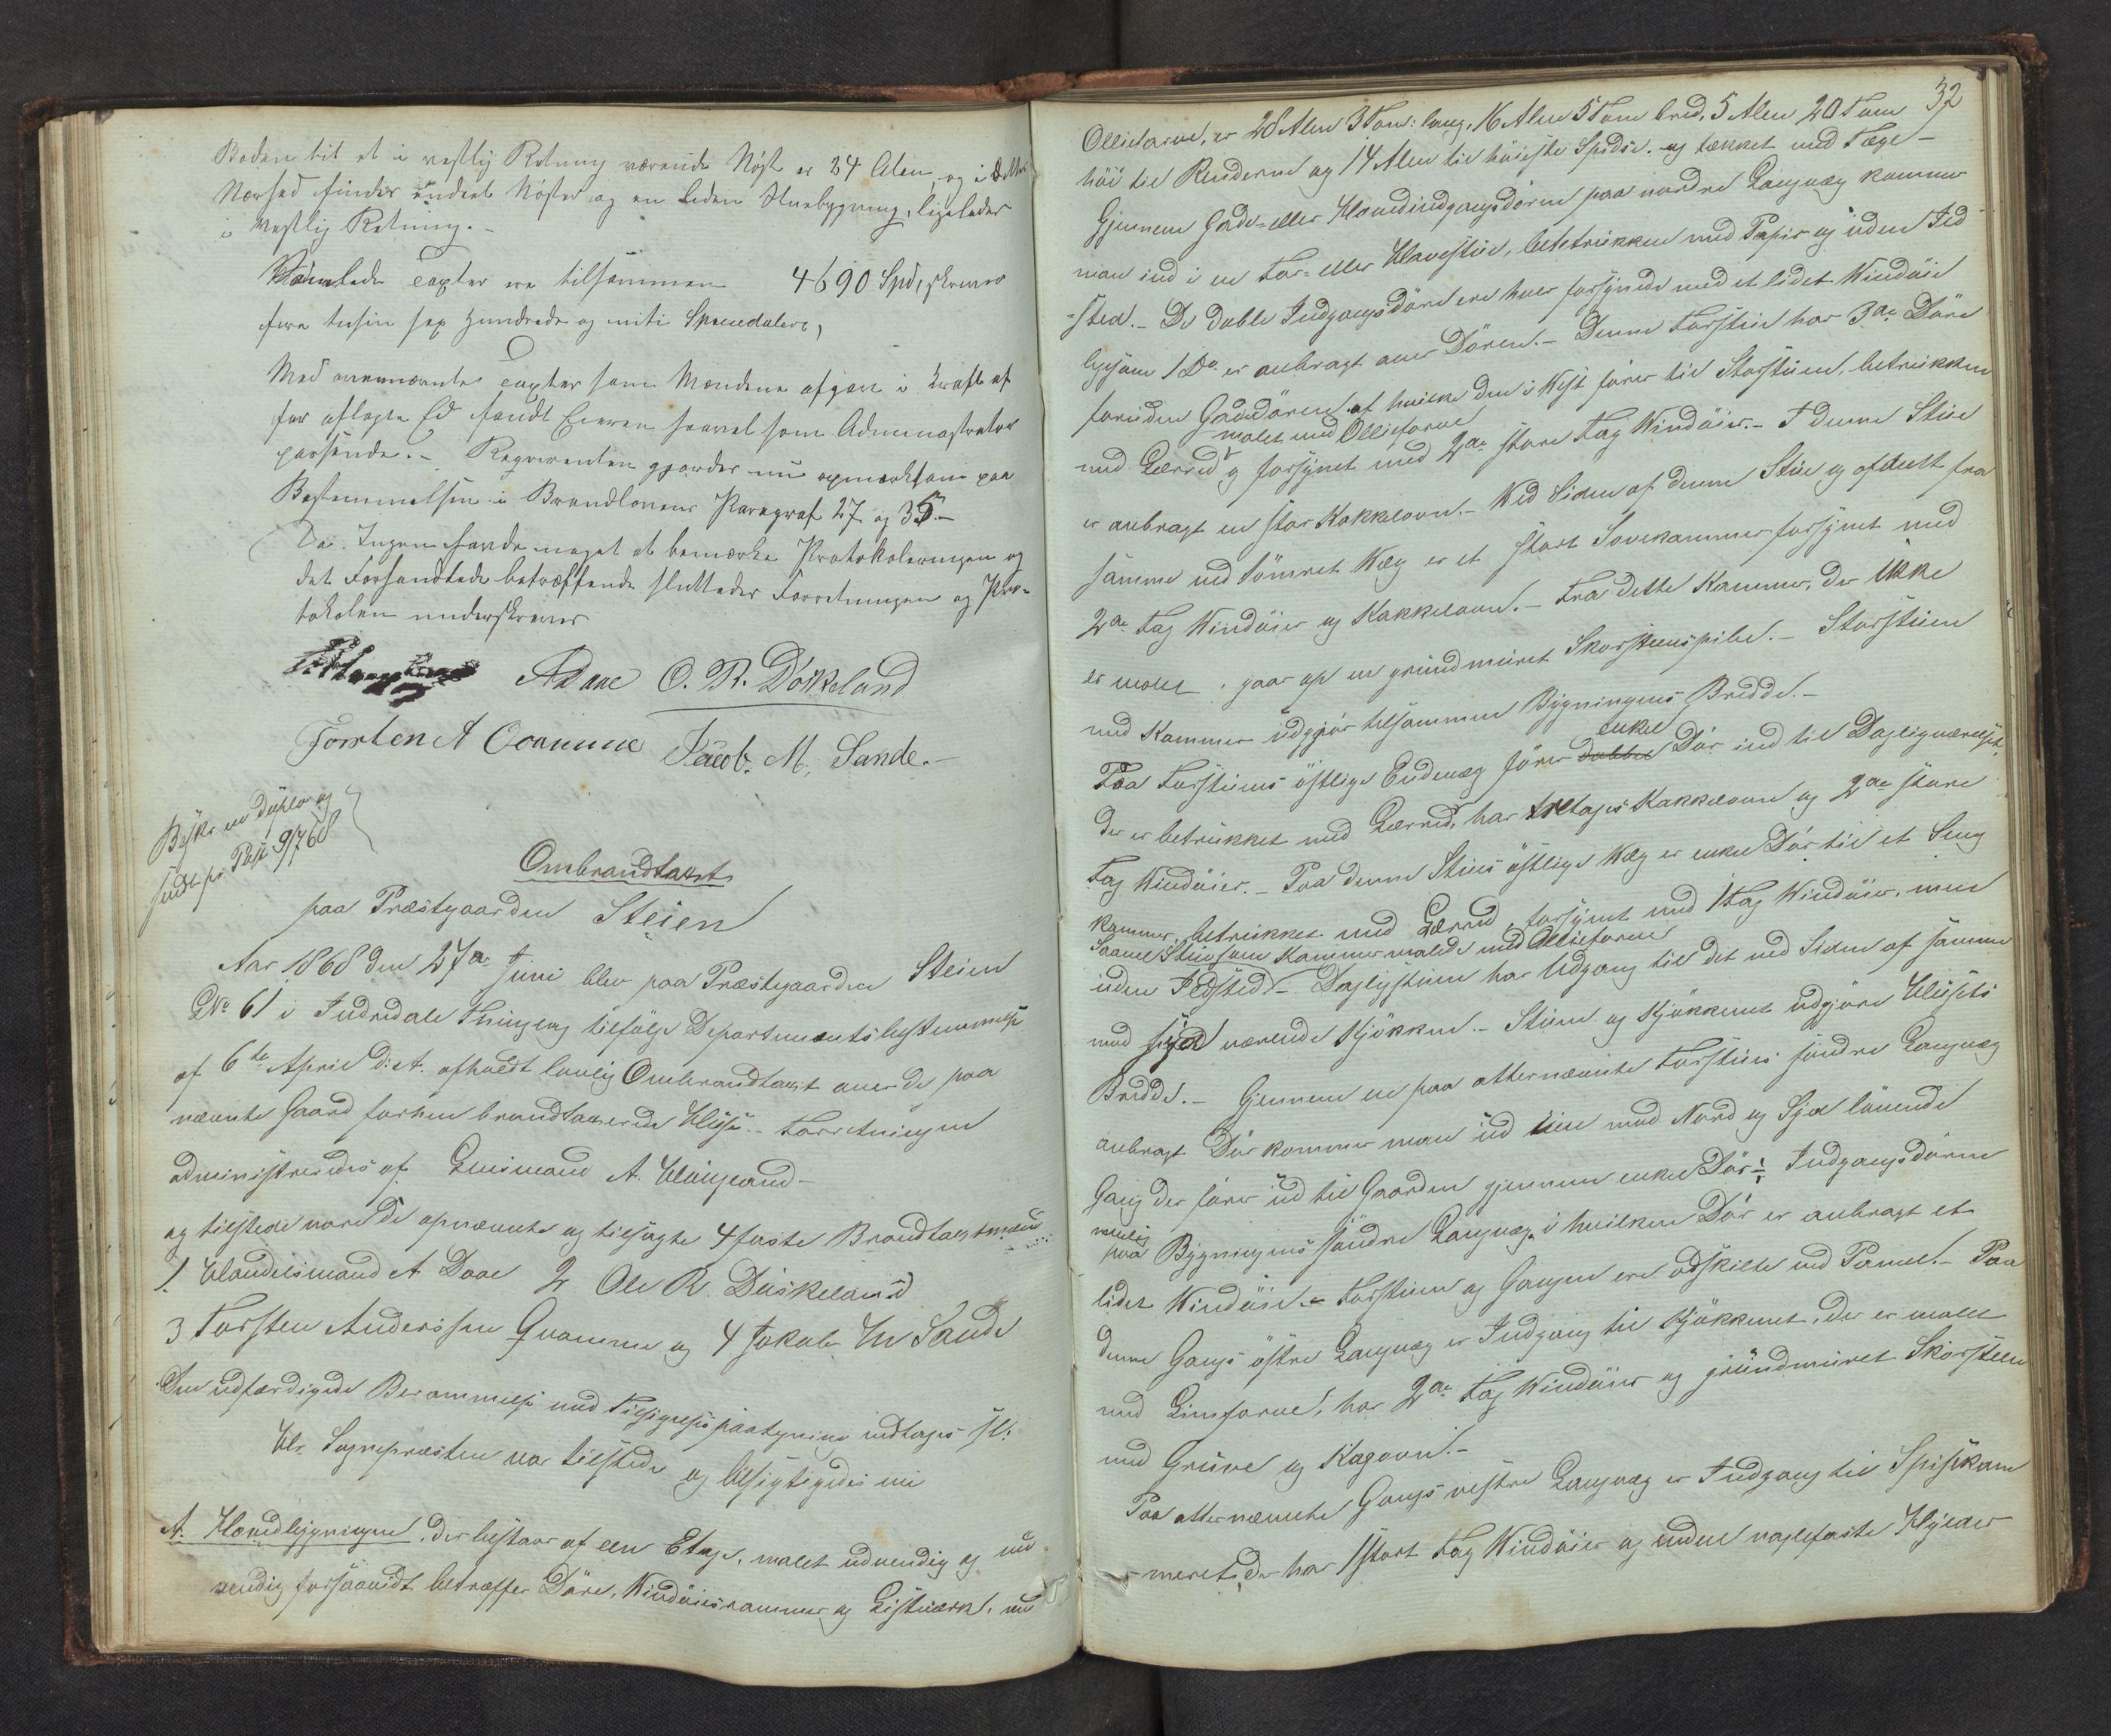 Boden til et i vestlig Retning værende Nøst er 24 Alen, og i dettes
Nærhed findes endeel Nøster og en liden Huusbygning, ligeledes
i vestlig Retning.-
Samtlede Taxter ere tilsammen 4690 Spd, skriver
fire tusin sex Hundrede og niti Speciedalere,
Med ovennævnte Taxter som Mændene afgav i Kraft af
før aflagte Ed fandt Eieren saavel som Administrator
passende.- Reqvirenten gjordes nu opmærksom paa
Bestemmelsen i Brandlovens Paragraf 27 og 35.-
Da Ingen havde noget at bemærke Protokoleringen og
det Forhandlede betræffende sluttedes Forretningen og Pro-
tokolen underskreves
ADaae O. R. Döskeland
Torsten A Qvamme Jacob. M. Sande.-
Beskr in duplo og
sendt pr Post 9/7 68
Ombrandtaxt
paa Præstgaarden Steien
Aar 1868 den 27de Juni blev paa Præstegaarden Steien
GNo 61 i Indredale Thinglag tilfölge Departementsbestemmelse
af 6te April d: A. afholdt lovlig Ombrandtaxt over de paa
nævnte Gaard forhen brandtaxerede Huse.- Forretningen
administreredes af Lensmand A. Haugland-
og tilstede vare de opnævnte og tilsagte 4 faste Brandtaxtmænd
1. Handelsmand A Daae 2 Ole R. Döskeland
3 Torsten Anderssen Qvamme og 4 Jakob M Sande
Den udfærdigede Berammelse med Tilsigelsespaategning indtages sl:
Hr. Sognepræsten var tilstede og besigtigedes nu
A. Hovedbygningen, der bestaar af een Etage, malet udvendig og ind
vendig forsaavidt betræffer Döre, Vinduiesrammer og Listværk, med
32
Olliefarve, er 28 Alen 3 Tom: lang, 16 Alen 5 Tom bred, 5 Alen 20 Tom
höi til Renderne og 14 Alen til höieste Spidse. og tækket med Tæge-
Gjennem Gade- eller Hovedindgangsdören paa nordre Langvæg kommer
man ind i en For- eller Havestue, betrukken med Papir og uden Ild
-sted.- De doble Indgangsdöre ere hver forsynede med et lidet Vindue
ligesom 1 Do er anbragt over Dören.- Denne Forstue har 3de Döre
foruden Gadedören, af hvilke den i Vest förer til Storstuen, betrukken
malet med Olliefarve
med Lærred og forsynet med 2de store Fag Vinduier.- I denne Stue
er anbragt en stor Kakkelovn.- Ved Siden af denne Stue og afdeelt fra
samme ved tömret Væg er et stort Sovekammer forsynet med
2de Fag Vinduier og Kakkelovn.- Fra dette Kammer, der ikke
er malet, gaar op en grundmuret Skorsteenspibe.- Storstuen
med Kammer udgjör tilsammen Bygningens Bredde.-
enkel
Paa Forstuens östlige Endevæg förer dobbel Dör ind til Dagligværelset
der er betrukket med Lærred, har tretages Kakkelovn og 2de store
Fag Vinduier.- Paa denne Stues östlige Væg er enkel Dör til et Seng
kammer, betrukket med Lærred, forsynet med 1 Fag Vinduier, men
Saavel Stue som Kammer malede med Olliefarve
uden Ildsted.- Dagligstuen har Udgang til det ved Siden af samme
mod Syd værende Kjökken.- Stuen og Kjökkenet udgjöre Husets
Bredde.- Gjennem en paa otternævnte Forstues söndre Langvæg
anbragt Dör kommer man ud i en mod Nord og Syd löbende
Gang der förer ud til Gaarden gjennem enkel Dör Indgangsdören
nemlig
paa Bygningens söndre Langvæg, i hvilken Dör er anbragt et
lidet Vindue.- Forstuen og Gangen ere adskilte ved Panel.- Paa
denne Gangs östre Langvæg er Indgang til Kjökkenet, der er malet
med Limfarve, har 2de Fag Vinduier og grundmuret Skorsteen
med Gruve og Bagovn.-
Paa otternævnte Gangs vestre Langvæg er Indgang til Spiskam
-meret, der har 1 stort Fag Vinduier og endeel naglefaste Hylder